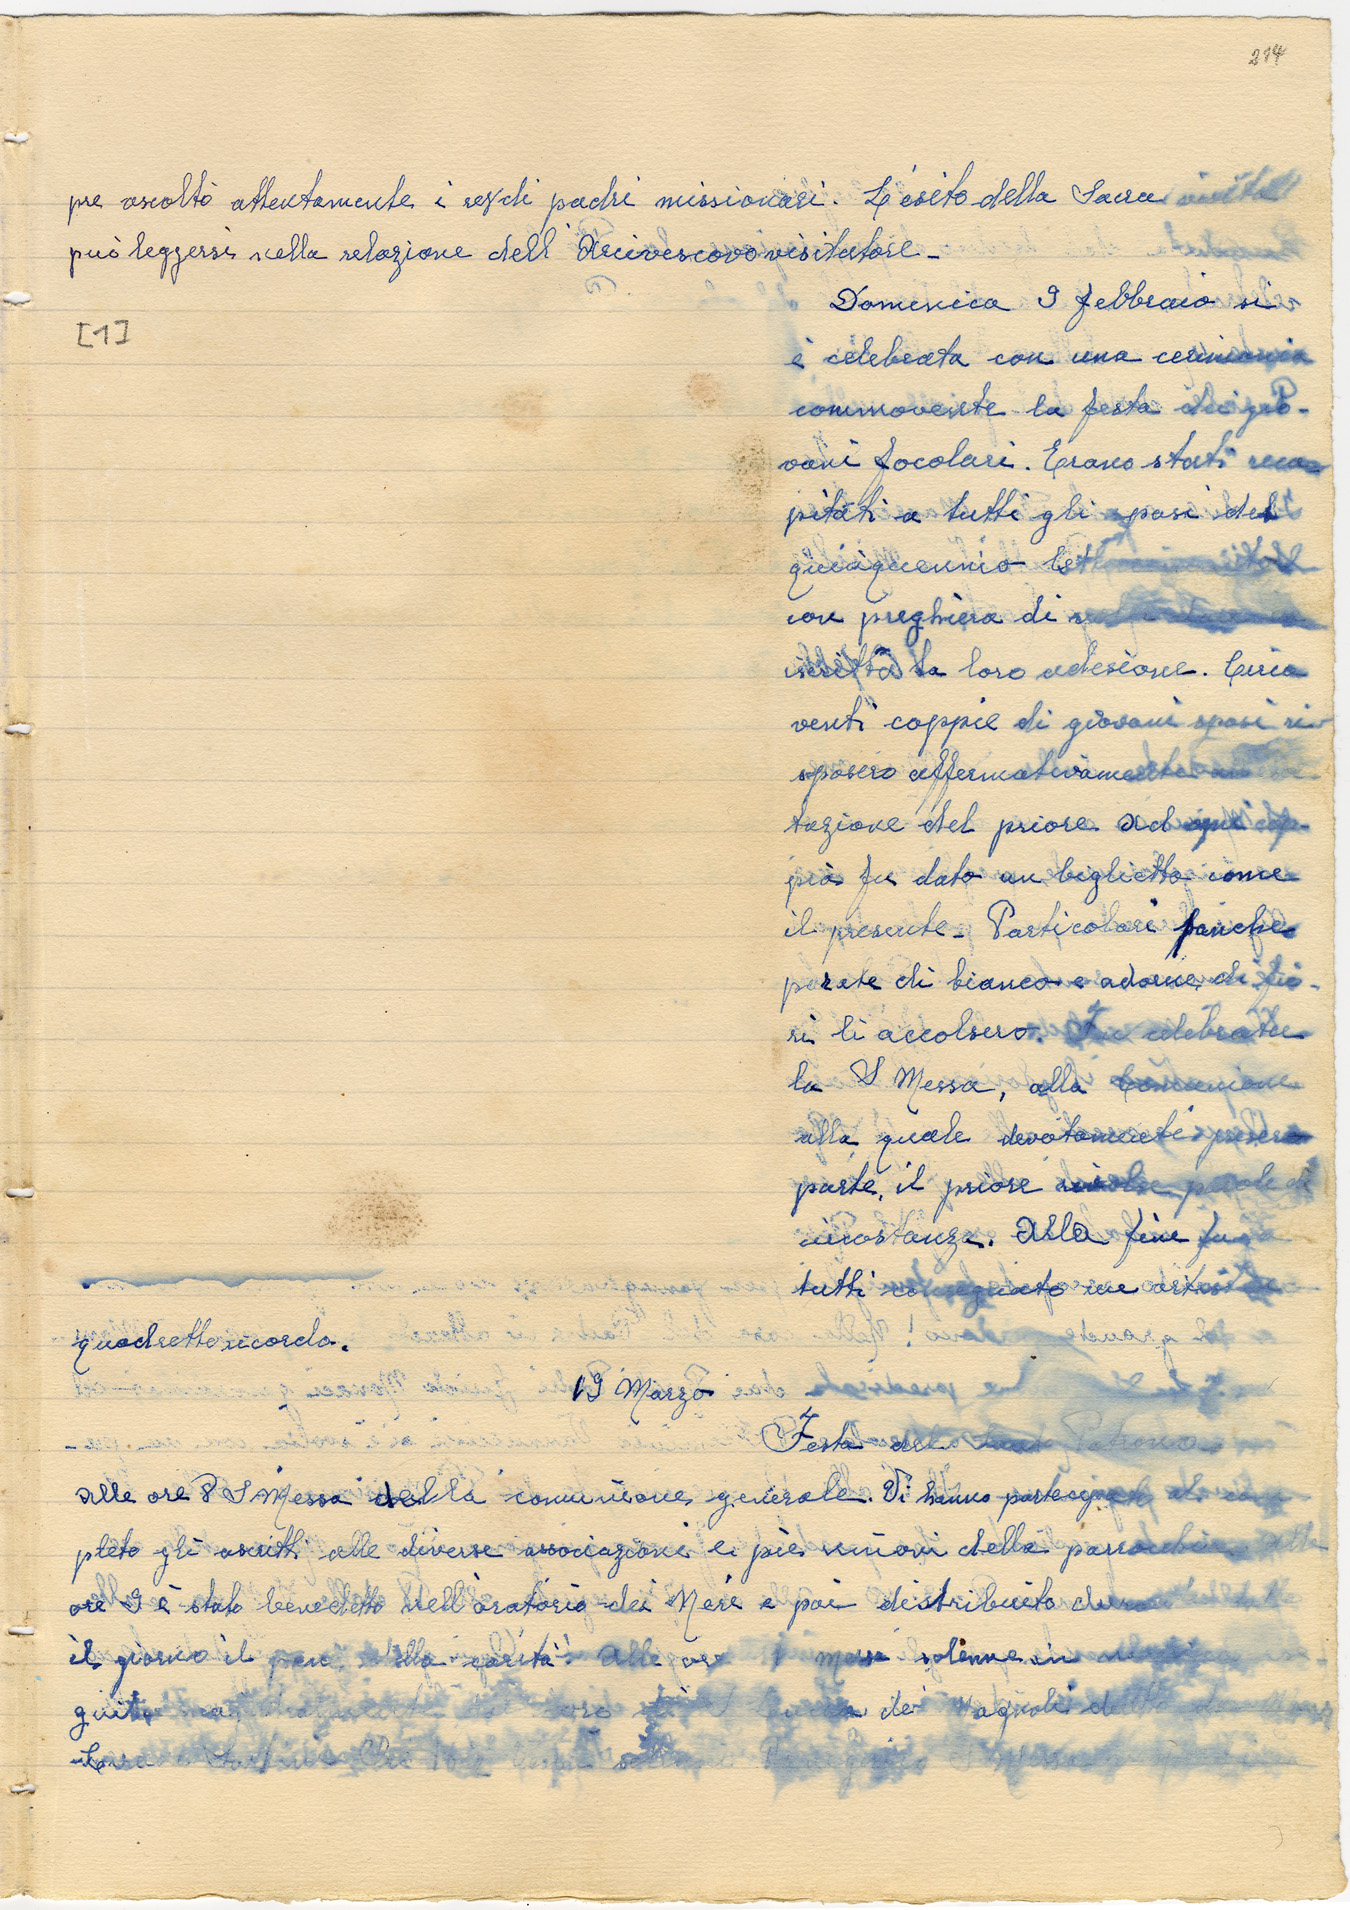 214
pre ascoltò attentamente i rev.di padri missionari. L'esito della Sacra visita
può leggersi nella relazione dell'Arcivescovo visitatore_
[1]
Domenica 9 febbraio si
è celebrata con una cerimonia
commovente la festa dei gio-
vani focolari. Erano stati reca-
pitati a tutti gli sposi del
quinquennio
con preghiera di
la loro adesione. Circa
venti coppie di giovani sposi ri-
sposero affermativamente
tazione del priore Ad ogni cop-
pia fu dato un biglietto come
il presente_ Particolari panche
parate di bianco e adorne di fio-
ri li accolsero. Fu celebrata
la S Messa, alla Comunione
alla quale devotamente presero
parte, il priore rivolse parole di
circostanza. Alla fine fu a
tutti consegnato un
quadretto ricordo.
19 Marzo
Festa del Patrono
alle ore 8 S Messa della comunione generale. Vi hanno partecipato al com-
pleto gli ascritti alle diverse associazioni e pie unioni della parrocchia alle
ore 9 è stato benedetto nell'oratorio dei Neri e poi distribuito
il giorno il pane della carità. Alle ore messa solenne in
dei